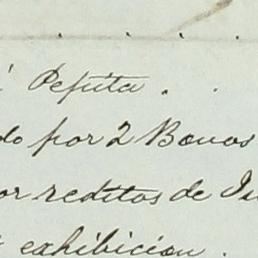 Pepita . .
do por 2 Bonos
or reditos de Ju
exhibicion .